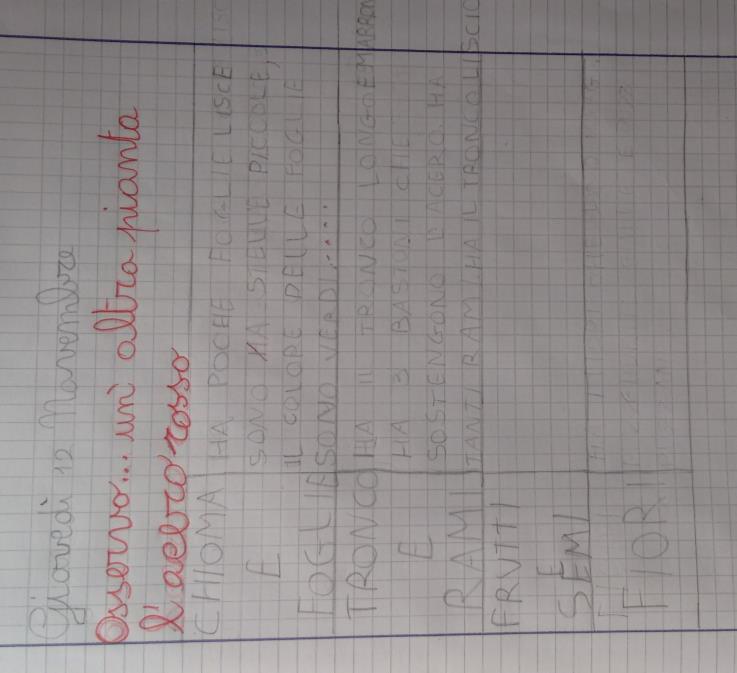 Giovedì 12 Novembre
Osservo... un'altra pianta
l'acero rosso
CHIOMA E FOGLIE
HA POCHE FOGLIE LISCE
SONO MA STELLE PICCOLE,
IL COLORE DELLE FOGLIE
SONO VERDI.....
TRONCO E RAMI
HA IL TRONCO LONGO E MARRON
HA 3 BASTONI CHE
SOSTENGONO L'ACERO. HA
TANTI RAMI HA IL TRONCO LISCIO
FRUTTI E SEMI
FIORI